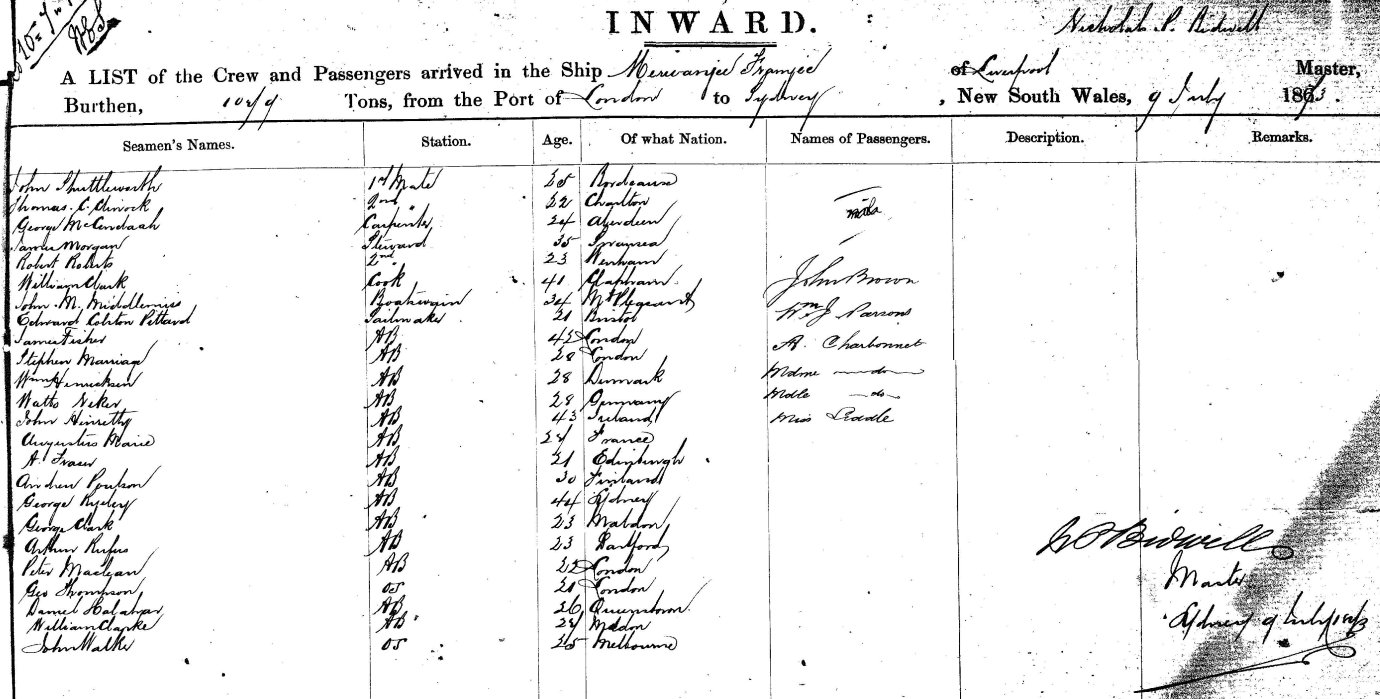 INWARD.
Nicholas P. Bidwell
A LIST of the Crew and Passengers arrived in the Ship Merwanjee Framjee of Liverpool Master,
Burthen, Tons, from the Port of London to Sydney, New South Wales, 9 July 1873.
Seamen's Names. Station. Age. Of what Nation. Names of Passengers. Description. Remarks.
John Shuttleworth 1st Mate 25 Bordeaux
Thomas C. 2nd " 22 Charlton
George 24 Carpenter Aberdeen
James Morgan Steward 35 Swansea
Robert Roberts 2nd " 23 Wenham
William Clark Cook 41 Clapham John Brown
John M. Middlemiss Boatswain 34 Mt Pleasant Wm J Parsons
Edward Colston Pittard Sailmaker 21 Bristol
James Fisher AB 42 London A. Charbonnet
Stephen Marriag AB 28 London
Wm Henricksen AB 28 Denmark Mdme do
Watts AB 28 Germany Mdle do
John AB 43 Ireland Miss Liddle
Augustus Marie AB France
A. Fraser AB 21 Edinburgh
Andrew Poulson AB 30 Finland
George AB 44 Sydney
George Clark AB 23 Maldon
Arthur Rufus AB 23 Dartford
Peter Maclean AB 22 London
Geo Thompson OS 21 London
Daniel AB 26 Queenstown
William Clarke AB Maldon
John Walker OS 25 Melbourne
N P Bidwell
Master
Sydney 9 July 1873